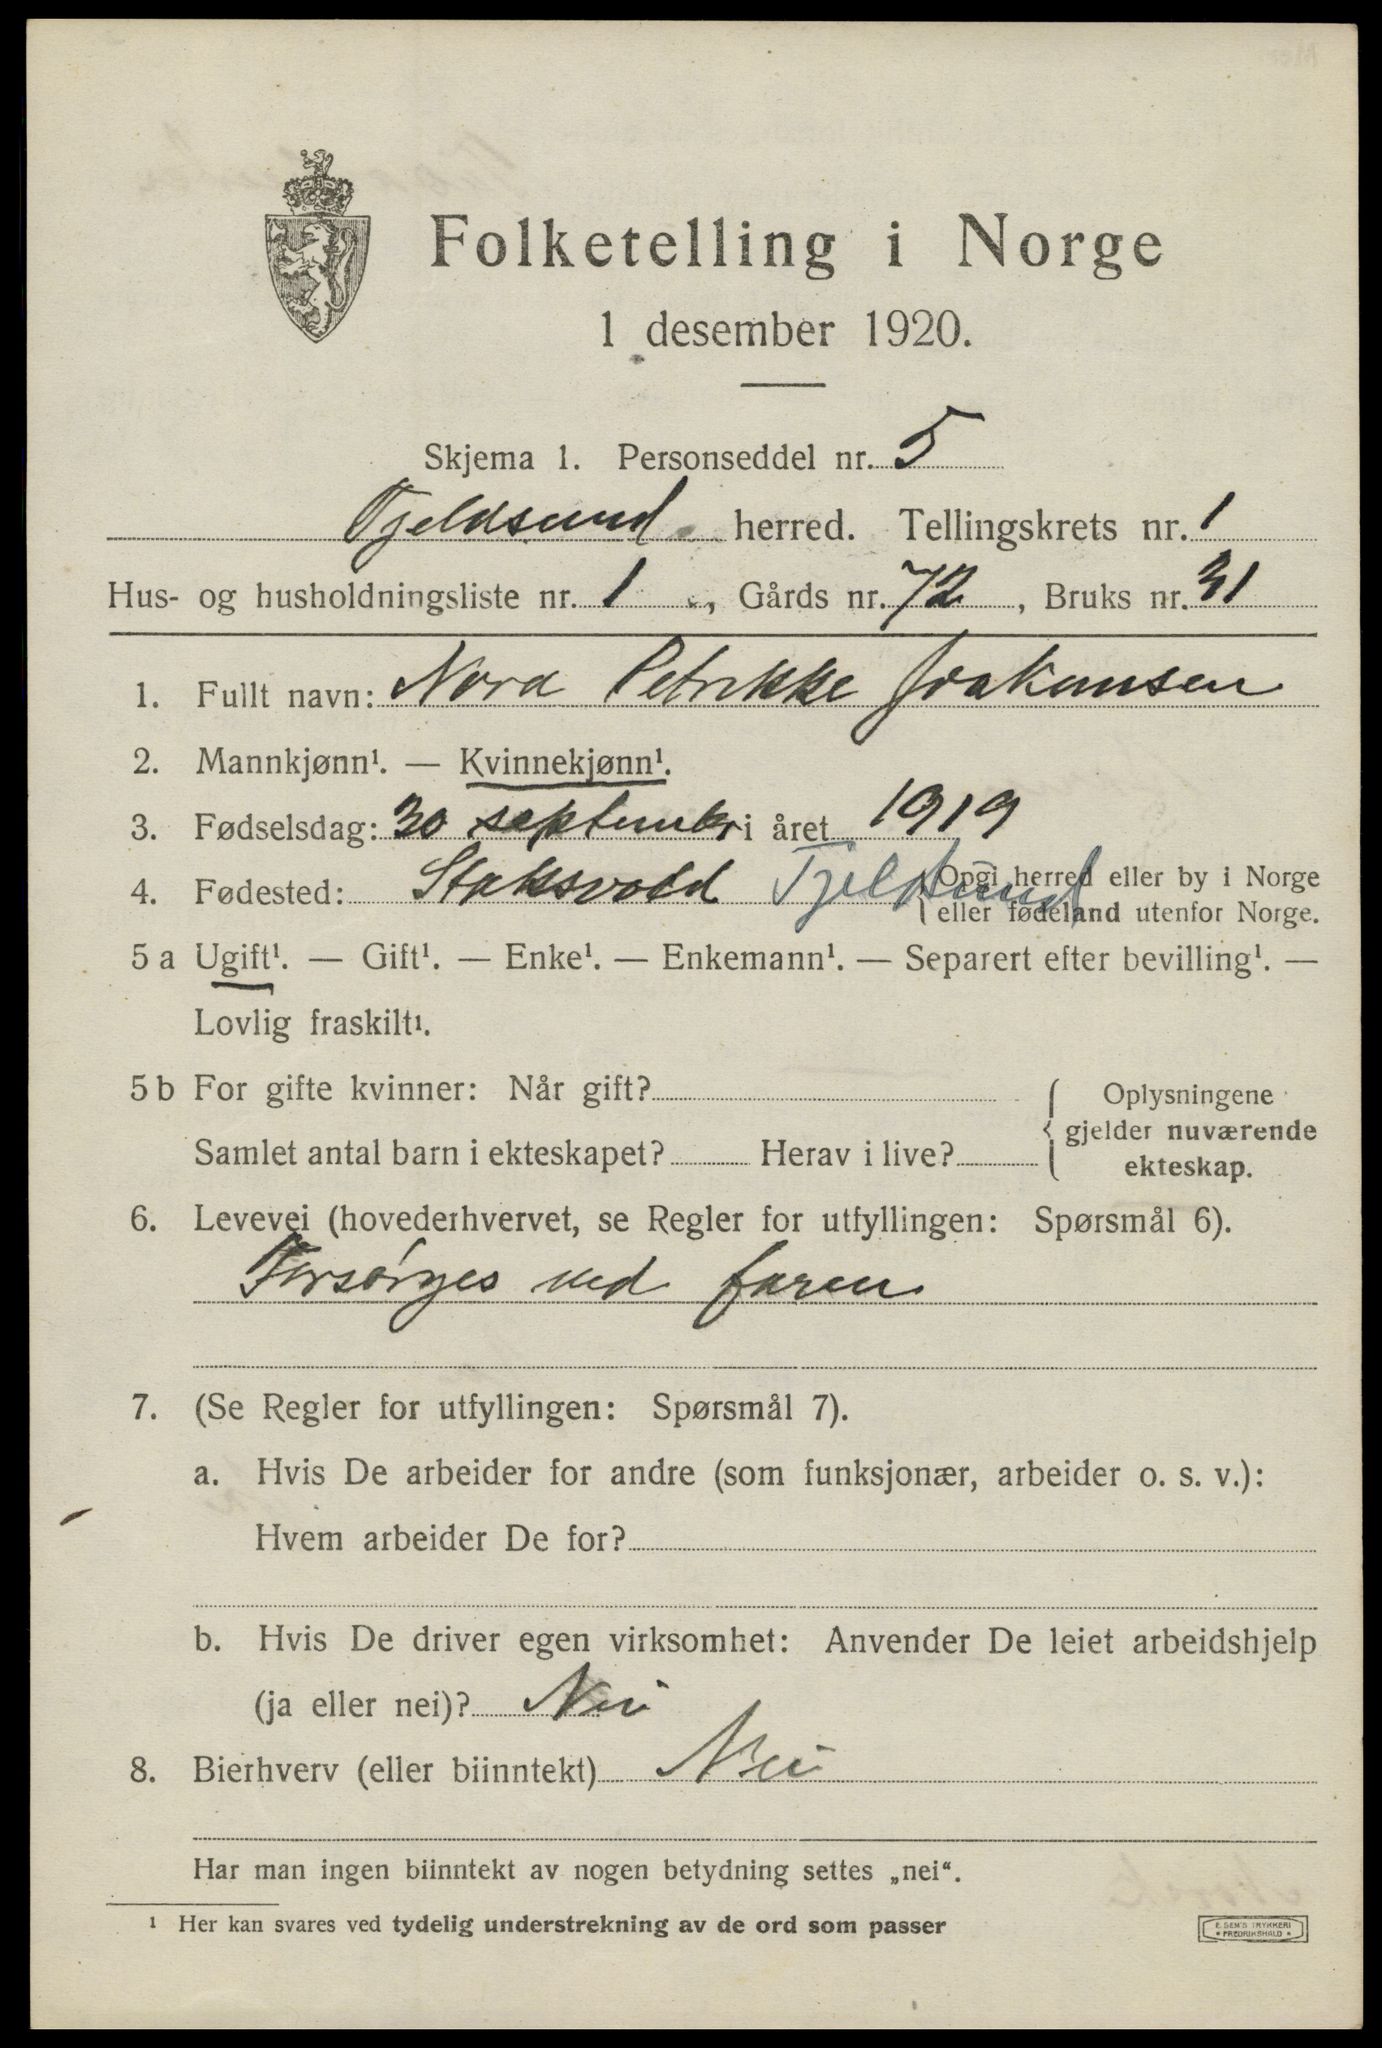 Folketelling i Norge
1 desember 1920.
Skjema 1. Personseddel nr. 5
Tjeldsund herred. Tellingskrets nr. 1
Hus- og husholdningsliste nr. 1, Gårds nr. 72, Bruks nr. 31
1. Fullt navn: Nora Petrikke Joakimsen
2. Mannkjønn¹. — Kvinnekjønn¹.
3. Fødselsdag: 30 septembr i året 1919
4. Fødested: Staksvold Tjeldsund Opgi herred eller by i Norge
eller fødeland utenfor Norge.
5 a Ugift¹. — Gift¹. — Enke¹. — Enkemann¹. — Separert efter bevilling¹. —
Lovlig fraskilt¹.
5 b For gifte kvinner: Når gift?
Samlet antal barn i ekteskapet? Herav i live?
Oplysningene
gjelder nuværende
ekteskap.
6. Levevei (hovederhvervet, se Regler for utfyllingen: Spørsmål 6).
Forsørges ved faren
7. (Se Regler for utfyllingen: Spørsmål 7).
a. Hvis De arbeider for andre (som funksjonær, arbeider o. s. v.):
Hvem arbeider De for?
b. Hvis De driver egen virksomhet: Anvender De leiet arbeidshjelp
(ja eller nei)? Nei
8. Bierhverv (eller biinntekt) Nei
Har man ingen biinntekt av nogen betydning settes „nei“.
¹ Her kan svares ved tydelig understrekning av de ord som passer
E. SEM'S TRYKKERI
* FREDRIKSHALD *